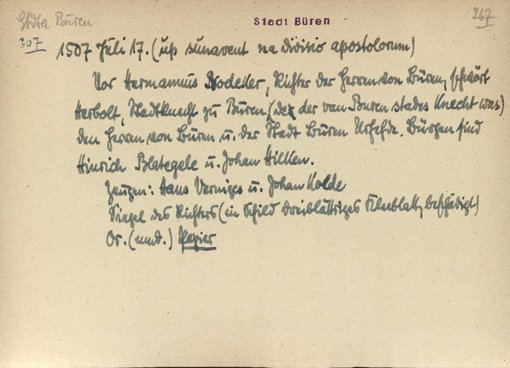 Stdta Büren
Stadt Büren
267
307
1507 Juli 17. (up sunavent na divisio apostolorum)
Vor Hermannus Rodeker, Richter der Herren von Büren, schwört
Herbolt, Stadtknecht zu Büren, (der der van Buren stades knecht was)
den Herren von Büren u. der Stadt Büren Urfehde. Bürgen sind
Hinrich Blategele u. Johan Hilken.
Zeugen: Hans Verniges u. Johan Kolde
Siegel des Richters (in Schild dreiblättriges Kleeblatt, beschädigt)
Or. (mnd.) Papier